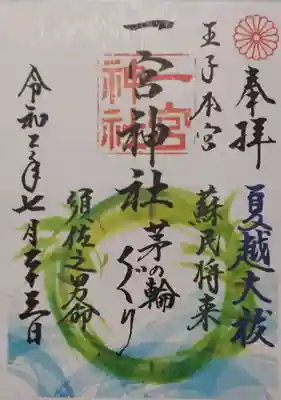 奉拝
夏越大祓
王子本宮
蘇民将来
一宮神社
一宮
神社
茅の輪
くぐり
須佐之男命
令和年七月二十三日